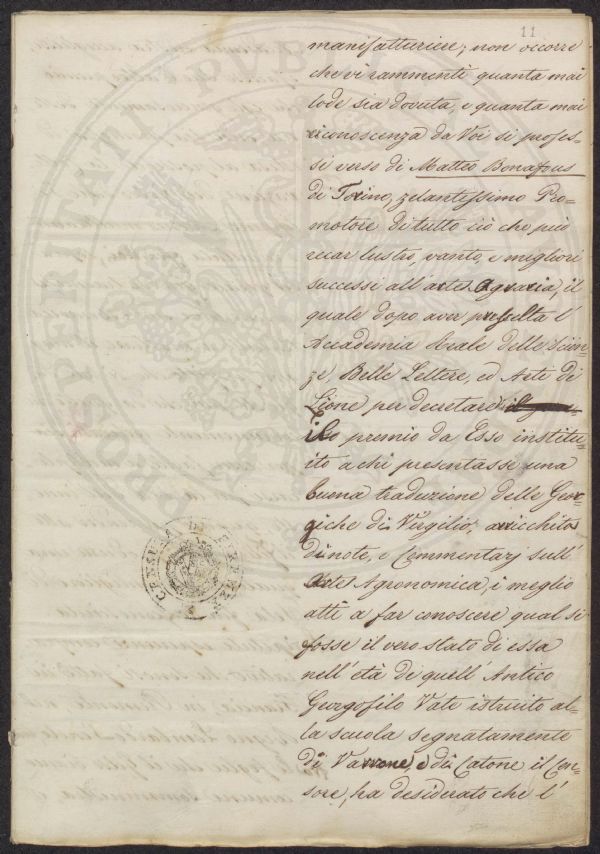 11
manifatturiere; non occorre
che vi rammenti quanta mai
lode sia dovuta, e quanta mai
riconoscenza da Voi si profes=
si verso di Matteo Bonafous
di Torino, zelantissimo Pro=
motore di tutto ciò che può
recar lustro, vanto, e migliori
successi all'arte Agraria, il
quale dopo aver prescelta l'
Accademia Reale delle Scien=
ze, Belle Lettere, ed Arti di
Lione per decretare
il premio da Esso institu=
ito a chi presentasse una
buona traduzione delle Geor=
giche di Virgilio, arricchita
di note, e Commentarj sull'
Arte Agronomica, i meglio
atti a far conoscere qual si
fosse il vero stato di essa
nell'età di quell'Antico
Georgofilo Vate istruito al=
la scuola segnatamente
di Varrone, e di Catone il Cen=
sore, ha desiderato che l'
CENSURA DI FIRENZE
PROSPERITATI PUBLICAE